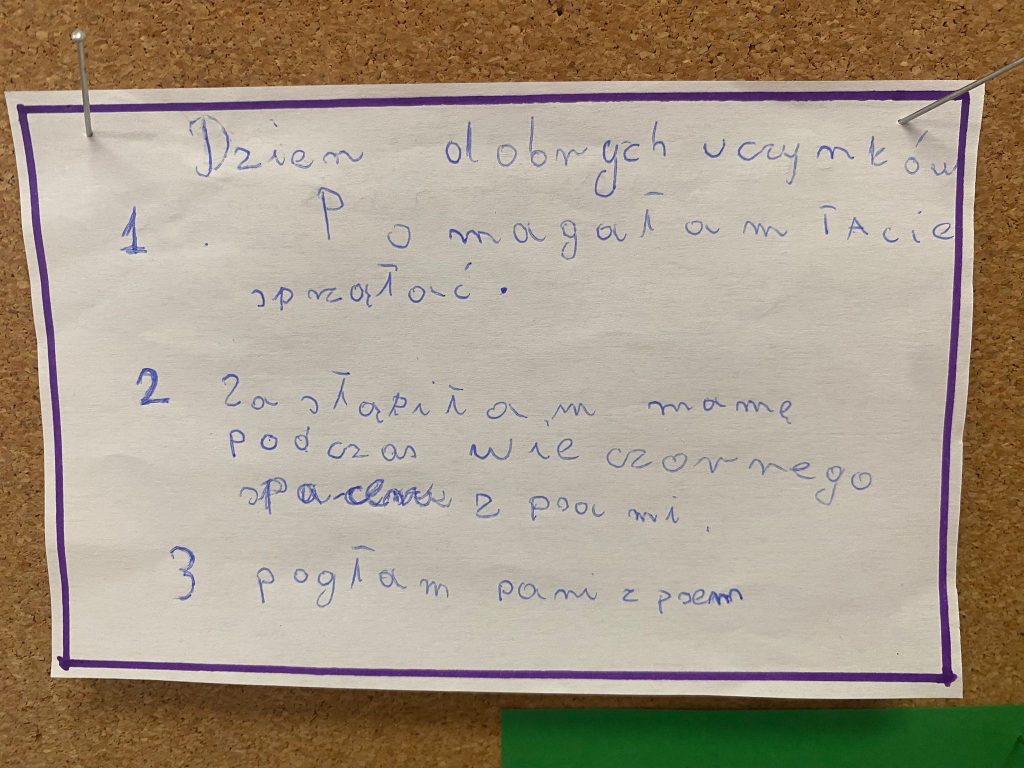 Dzien dobrych uczynków
1. Pomagałam TAcie
sprzątać.
2 Zastąpiłam mamę
podczas wieczornego
spaceru z psami.
3 pogłam pani z psem